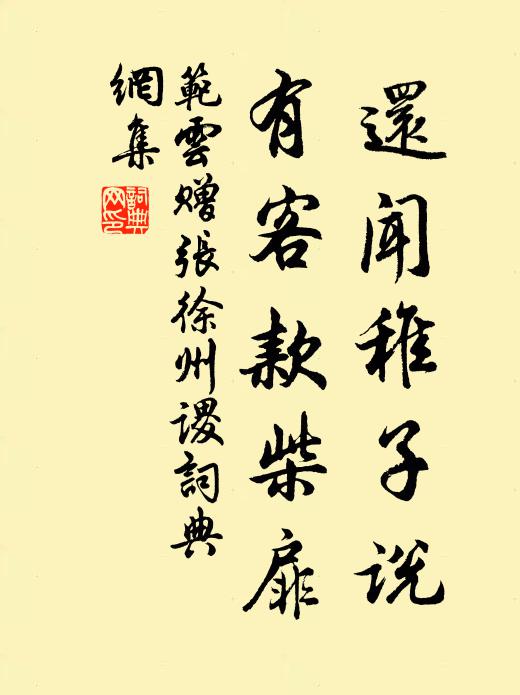 還聞稚子說
有客款柴扉
範雲贈張徐州謖詞典
網集
詞典
网印